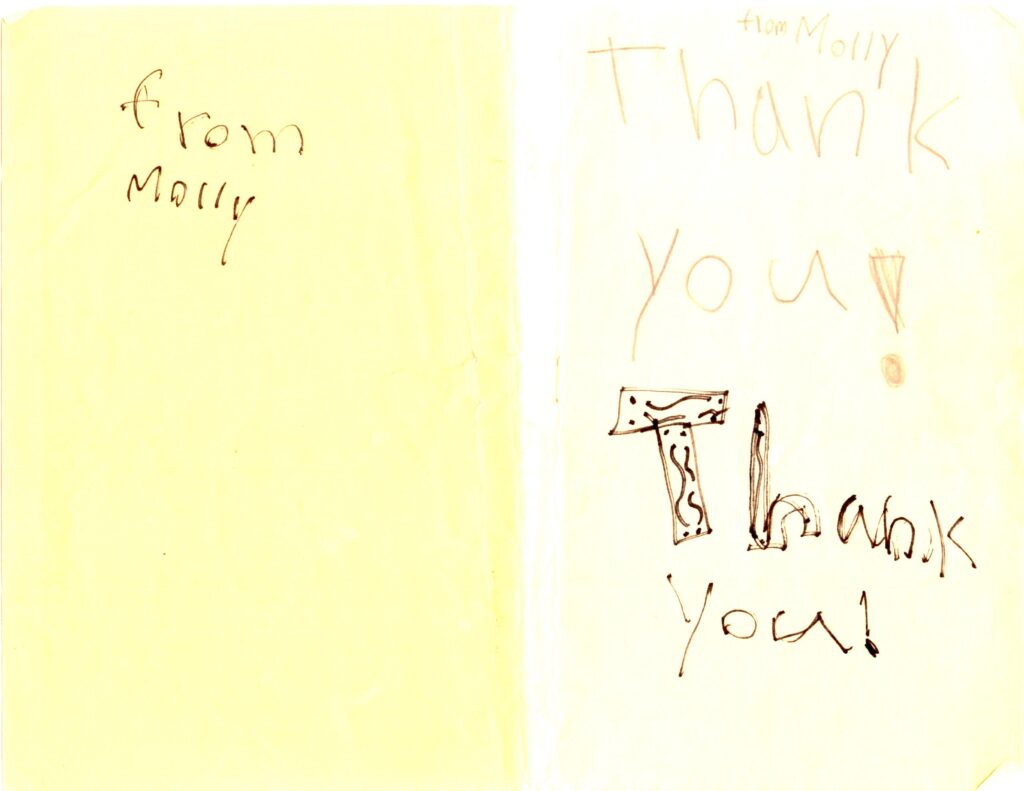 from
Molly
from Molly
Thank
you!
Thank
You!